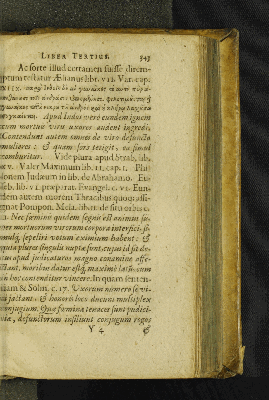 LIBER TERTIVS. 343
Ac forte illud certamen fuisse direm-
ptum testatur Ælianus lib. VII. Var. cap.
XVIII.
Apud Indos verò eundem ignem
cum mortuo viru uxores audent ingredi.
Contendunt autem omnes de viro defuncto
mulieres: & quam sors tetigit, ea simul
comburitur. Vide plura apud Strab. lib.
xv. Valer Maximum lib. 11. cap. 1. Phi-
lonem Iudæum in lib. de Abrahamo. Eu-
seb. lib. præparat. Evangel. c. Eun-
dem autem morem Thracibus quoque assi-
gnat Pompon. Mela. liber. de situ orbis c.
Nec fœminis quidem segnis est animus su-
per mortuorum virorum corpora interfici, si-
mulque sepeliri votum eximium habent: &
quia plures singulis nuptæ sunt, cujus id sit de-
cus apud judicaturos magno certamine affe-
ctant. moribus datur estque maximè lætum cum
in hoc contenditur vincere. In quam senten-
tiam & Solin. c. 17. Uxorum numero se vi-
ri jactant, & honoris loco ducunt multiplex
conjugium. Quæ fœminæ tenaces sunt pudici-
tiæ, defunctorum insiliunt conjugum rogos
Y 4 &